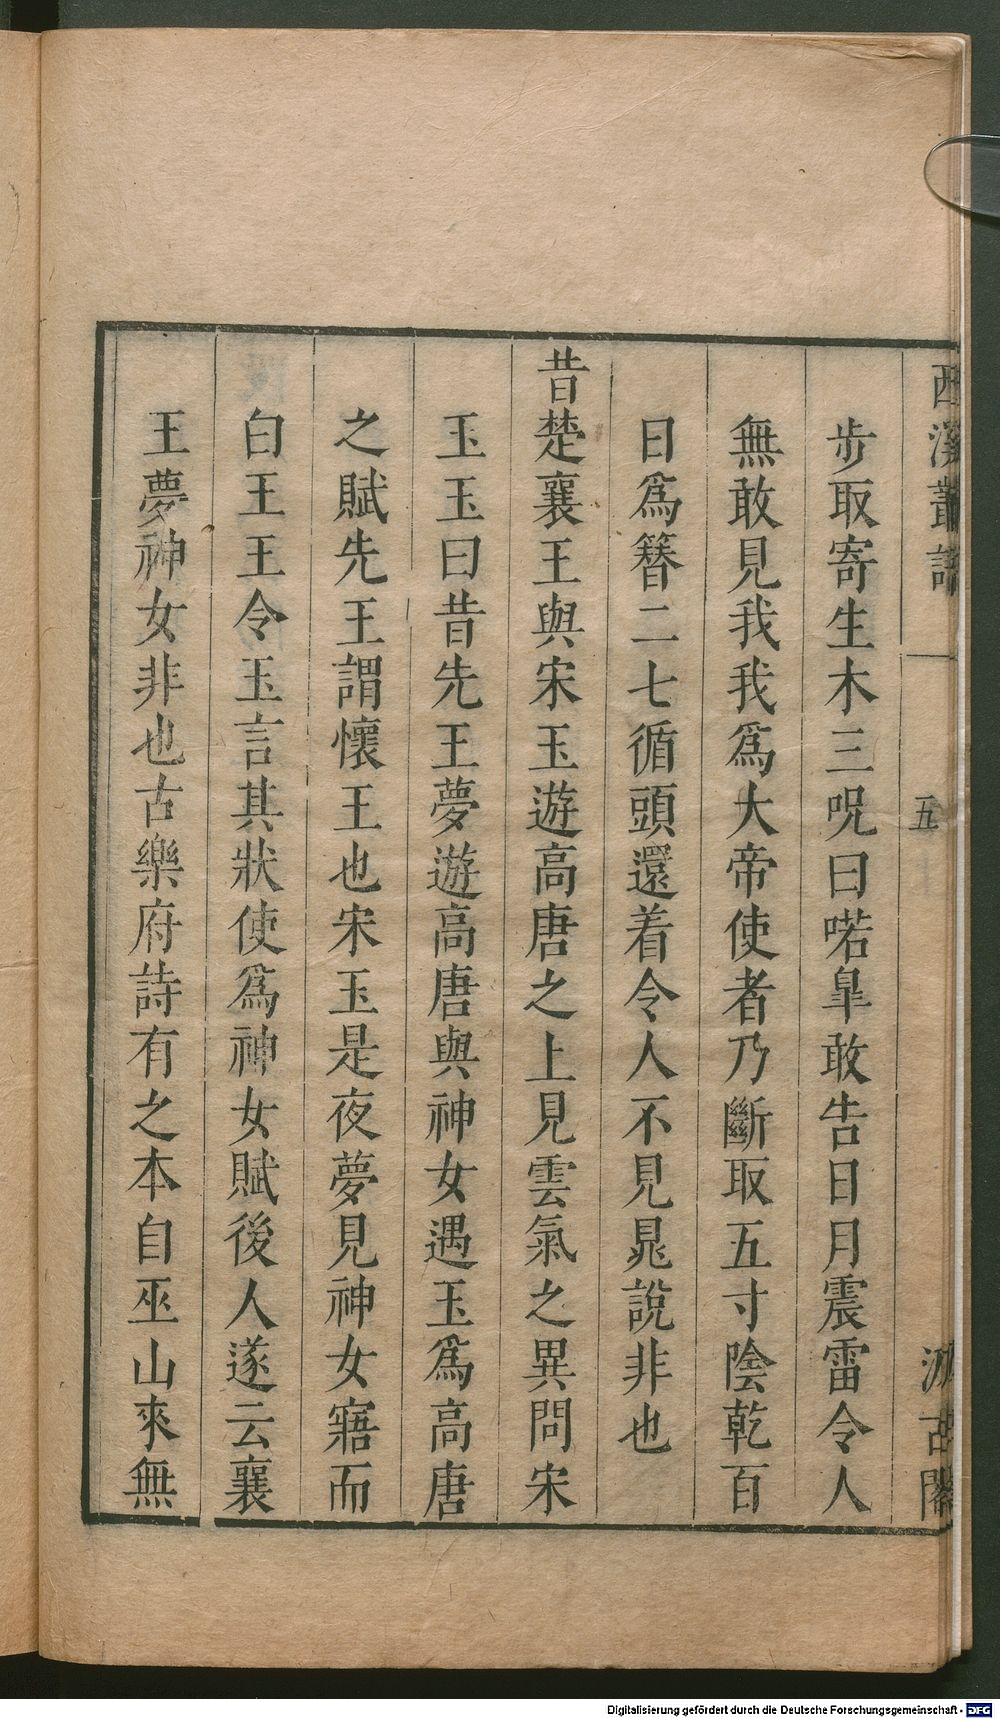 西溪叢語
五
汲古閣
步取寄生木三呪曰喏皐敢告日月震雷令人
無敢見我我爲大帝使者乃斷取五寸陰乾百
日爲簪二七循頭還着令人不見晁說非也
昔楚襄王與宋玉遊高唐之上見雲氣之異問宋
玉玉曰昔先王夢遊高唐與神女遇玉爲高唐
之賦先王謂懷王也宋玉是夜夢見神女寤而
白王王令玉言其狀使爲神女賦後人遂云襄
王夢神女非也古樂府詩有之本自巫山來無
Digitalisierung gefördert durch die Deutsche Forschungsgemeinschaft - DFG